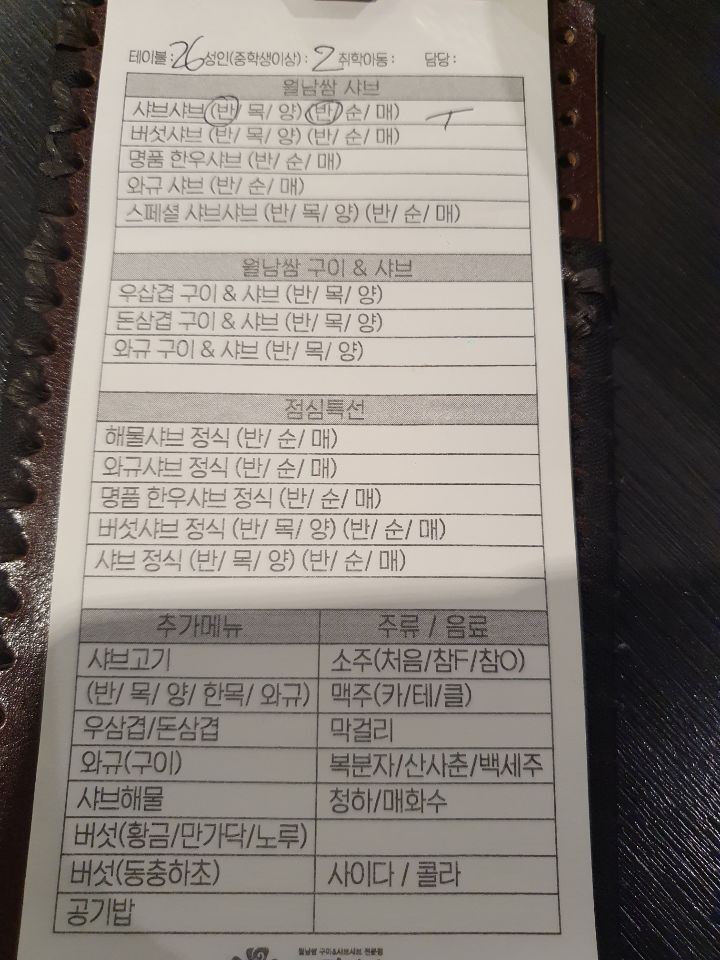 테이블: 26 성인(중학생이상) : 2 취학아동 : 담당 :
월남쌈 샤브
샤브샤브 (반/ 목/ 양) (반/ 순/ 매) T
버섯샤브 (반/ 목/ 양) (반/ 순/ 매)
명품 한우샤브 (반/ 순/ 매)
와규 샤브 (반/ 순/ 매)
스페셜 샤브샤브 (반/ 목/ 양) (반/ 순/ 매)
월남쌈 구이 & 샤브
우삼겹 구이 & 샤브 (반/ 목/ 양)
돈삼겹 구이 & 샤브 (반/ 목/ 양)
와규 구이 & 샤브 (반/ 목/ 양)
점심특선
해물샤브 정식 (반/ 순/ 매)
와규샤브 정식 (반/ 순/ 매)
명품 한우샤브 정식 (반/ 순/ 매)
버섯샤브 정식 (반/ 목/ 양) (반/ 순/ 매)
샤브 정식 (반/ 목/ 양) (반/ 순/ 매)
추가메뉴 주류 / 음료
샤브고기 소주(처음/참F/참O)
(반/ 목/ 양/ 한목/ 와규) 맥주(카/테/클)
우삼겹/돈삼겹 막걸리
와규(구이) 복분자/산사춘/백세주
샤브해물 청하/매화수
버섯(황금/만가닥/노루)
버섯(동충하초) 사이다 / 콜라
공기밥
월남쌈 구이&샤브샤브 전문점